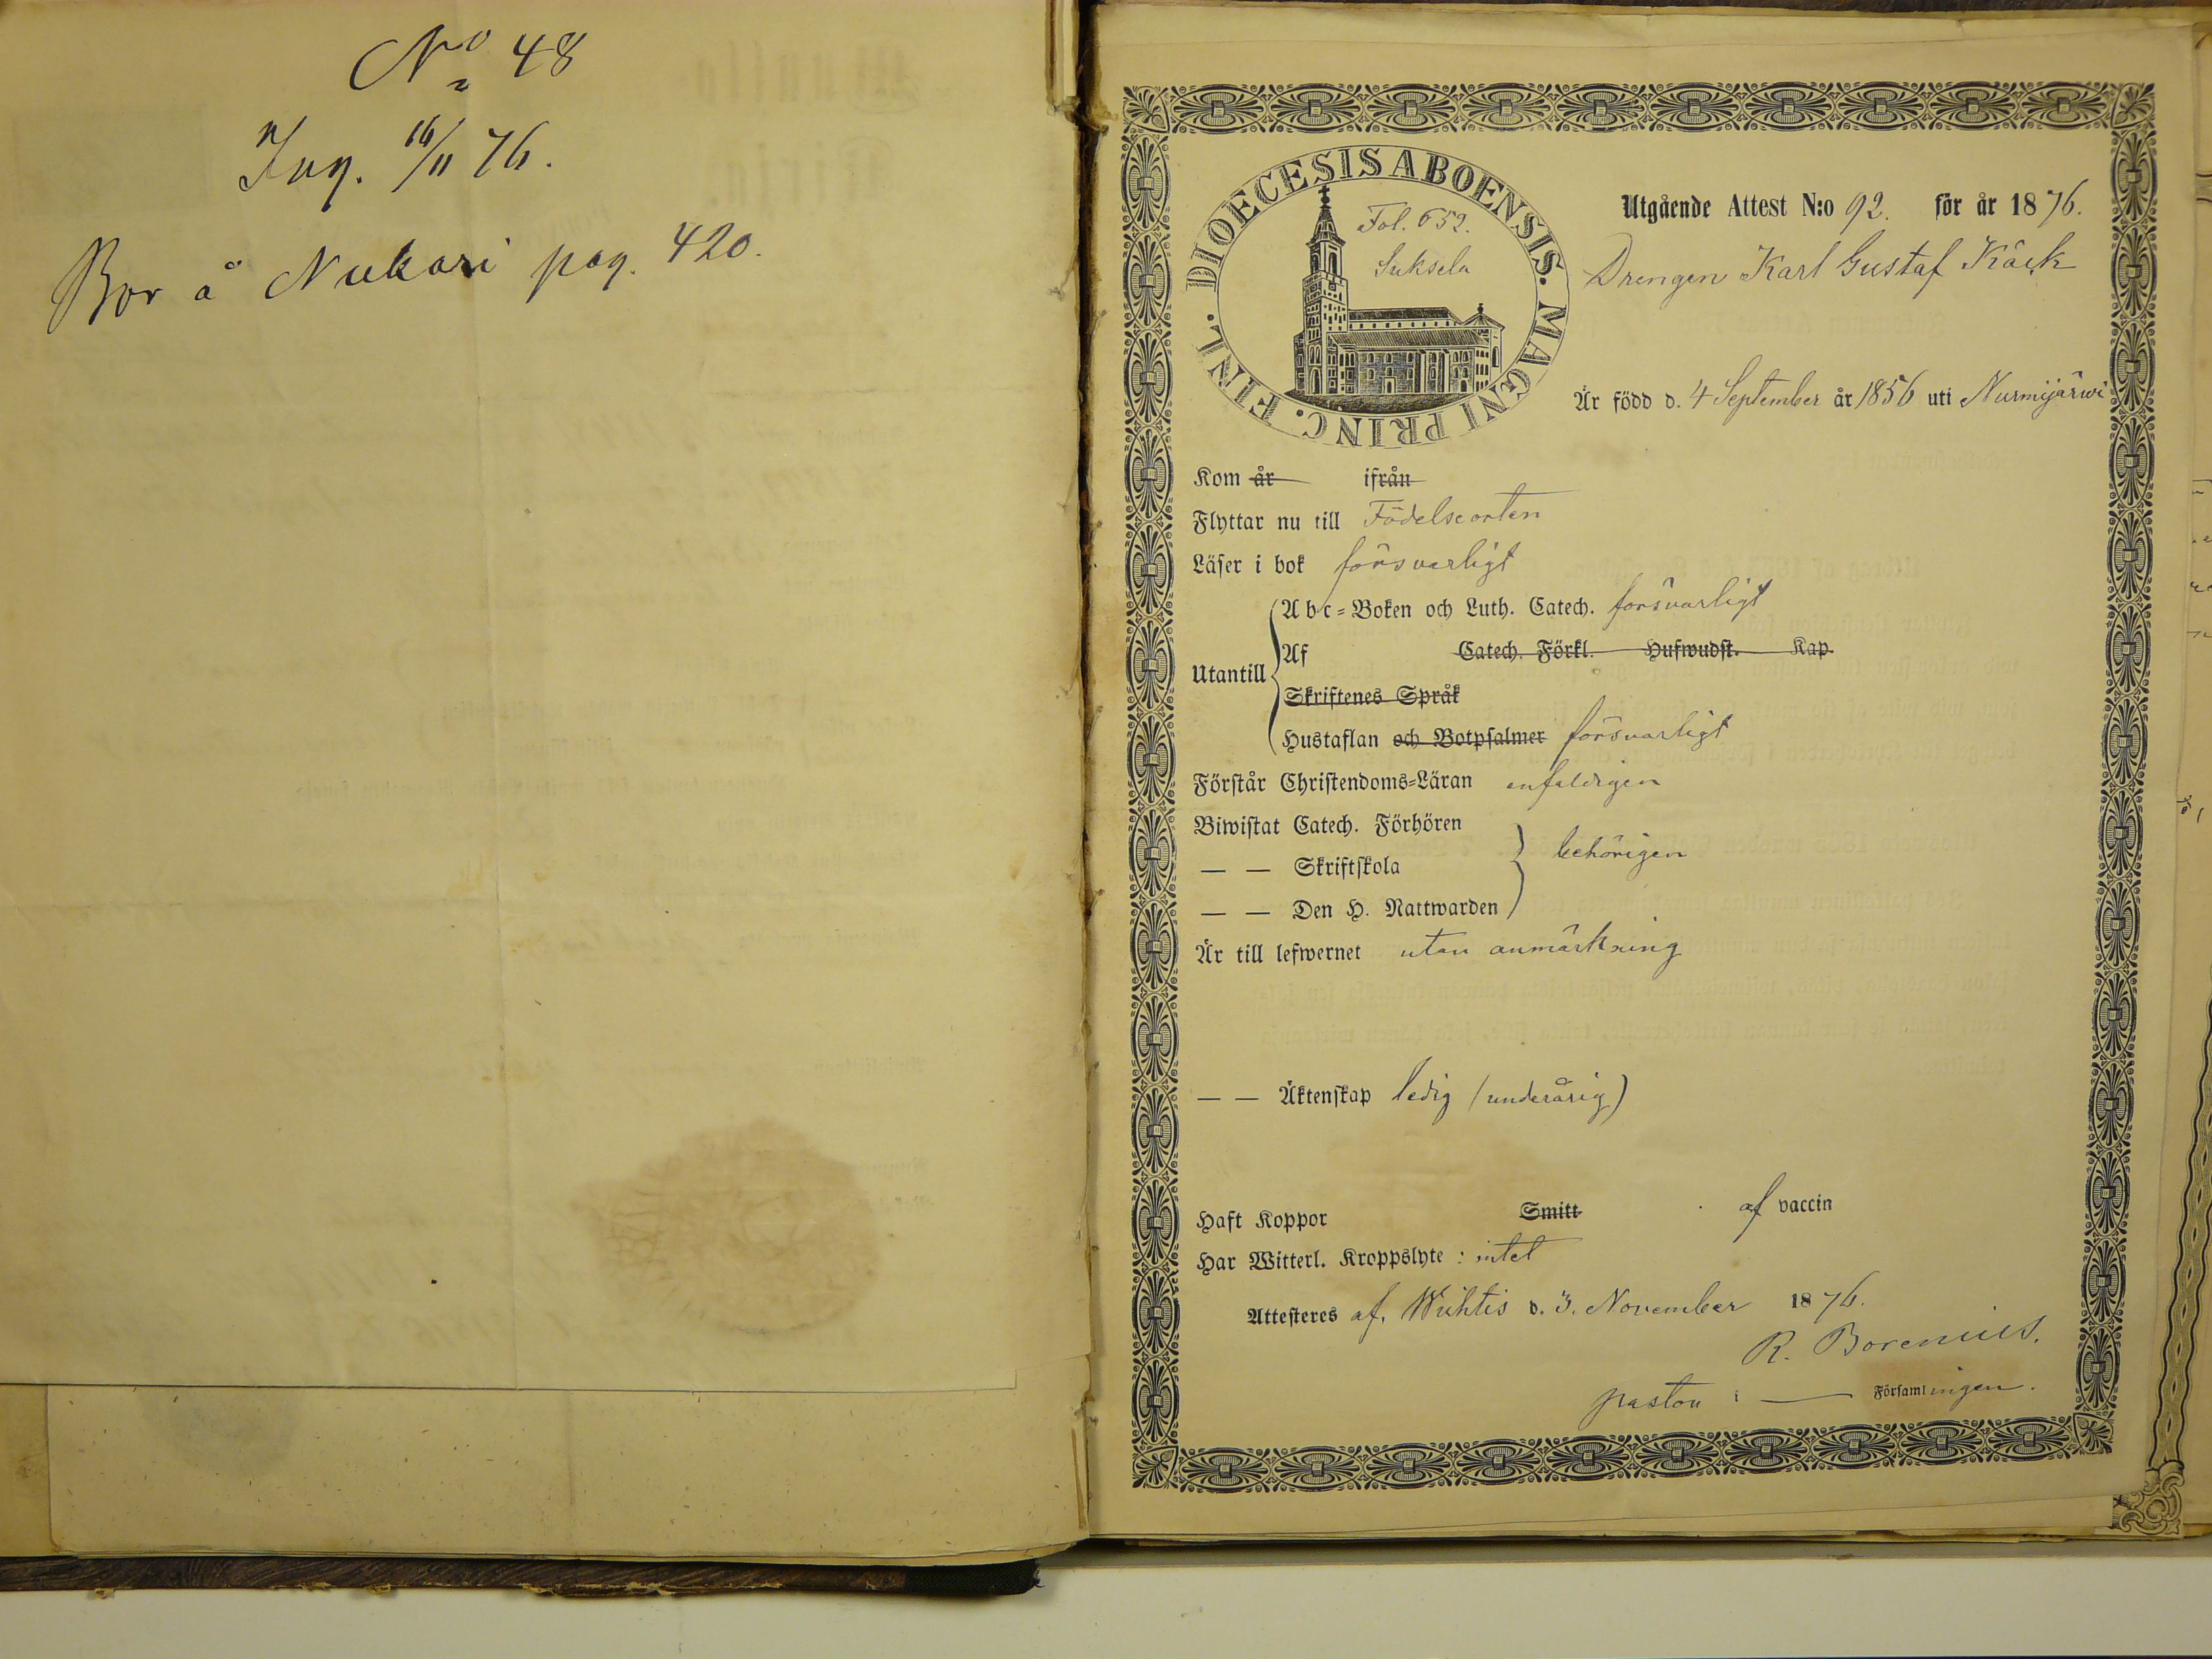 No 48
Ing. 16/11 76.
Bor å Nukari pag. 420.
DIOECESIS ABOENSIS. MAGNI PRINC. FINL.
Fol. 652.
Suksela
Utgående Attest N:o 92. för år 1876.
Drengen Karl Gustaf Käck
Är född d. 4 September år 1856 uti Nurmijärwi
Kom år ifrån
Flyttar nu till Födelseorten
Läser i bok försvarligt
Utantill
Abc-Boken och Luth. Catech. försvarligt
Af Catech. Förkl. Hufwudst. Kap.
Skriftenes Språk
Hustaflan och Botpsalmer försvarligt
Förstår Christendoms-Läran enfaldigen
Biwistat Catech. Förhören
— — Skriftskola behörigen
— — Den H. Nattwarden
Är till lefwernet utan anmärkning
— — Äktenskap ledig (underårig)
Haft Koppor Smitt af vaccin
Har Witterl. Kroppslyte: intet
Attesteres af. Wichtis d. 3. November 1876.
R. Borenius.
pastor i — Församlingen.